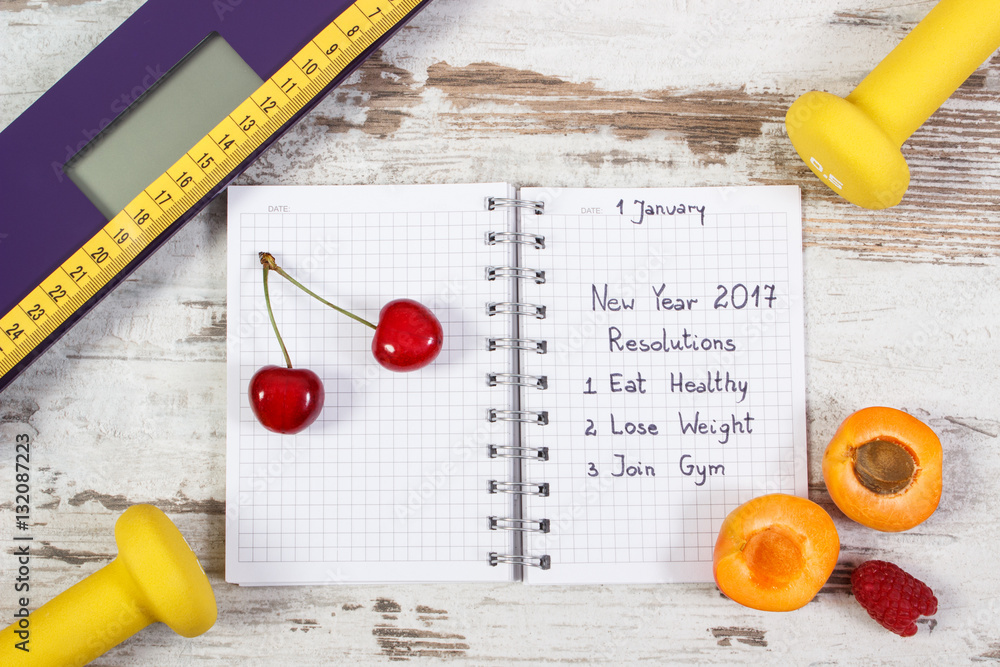 7
8
9
10
11
12
13
14
15
16
17
18
19
20
21
22
23
24
0.5
DATE:
DATE: 1 January
New Year 2017
Resolutions
1 Eat Healthy
2 Lose Weight
3 Join Gym
Adobe Stock | #132087223